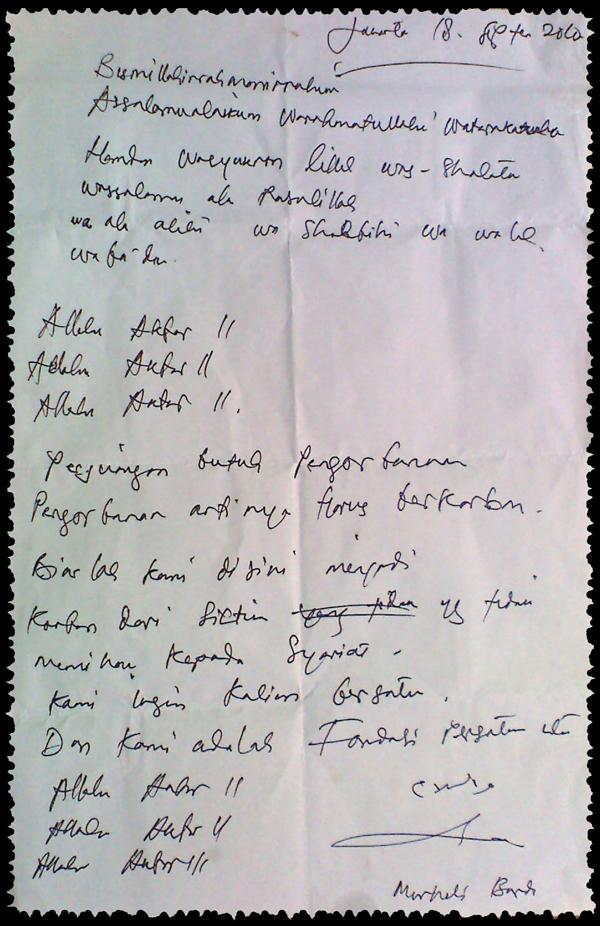 Jakarta 18. Septem 2010
Bismillahirrahmanirrahim
Assalamualaikum Warahmatullahi Wabarakatuhu
Hamdan Wasyukuran lillah was-Shalatu
wassalamu ala Rasulillah
wa ala alihi wa Shahbihi wa walah.
wa ba'du.
Allahu Akbar !!
Allahu Akbar !!
Allahu Akbar !!.
Perjuangan butuh Pengorbanan
Pengorbanan artinya Harus berkorban.
Biarlah kami disini menjadi
Korban dari Sistim yg tidak
memihak kepada Syariat.
Kami ingin kalian bersatu.
Dan kami adalah Fondasi Persatuan itu
Allahu Akbar !!
Allahu Akbar !!
Allahu Akbar !!!